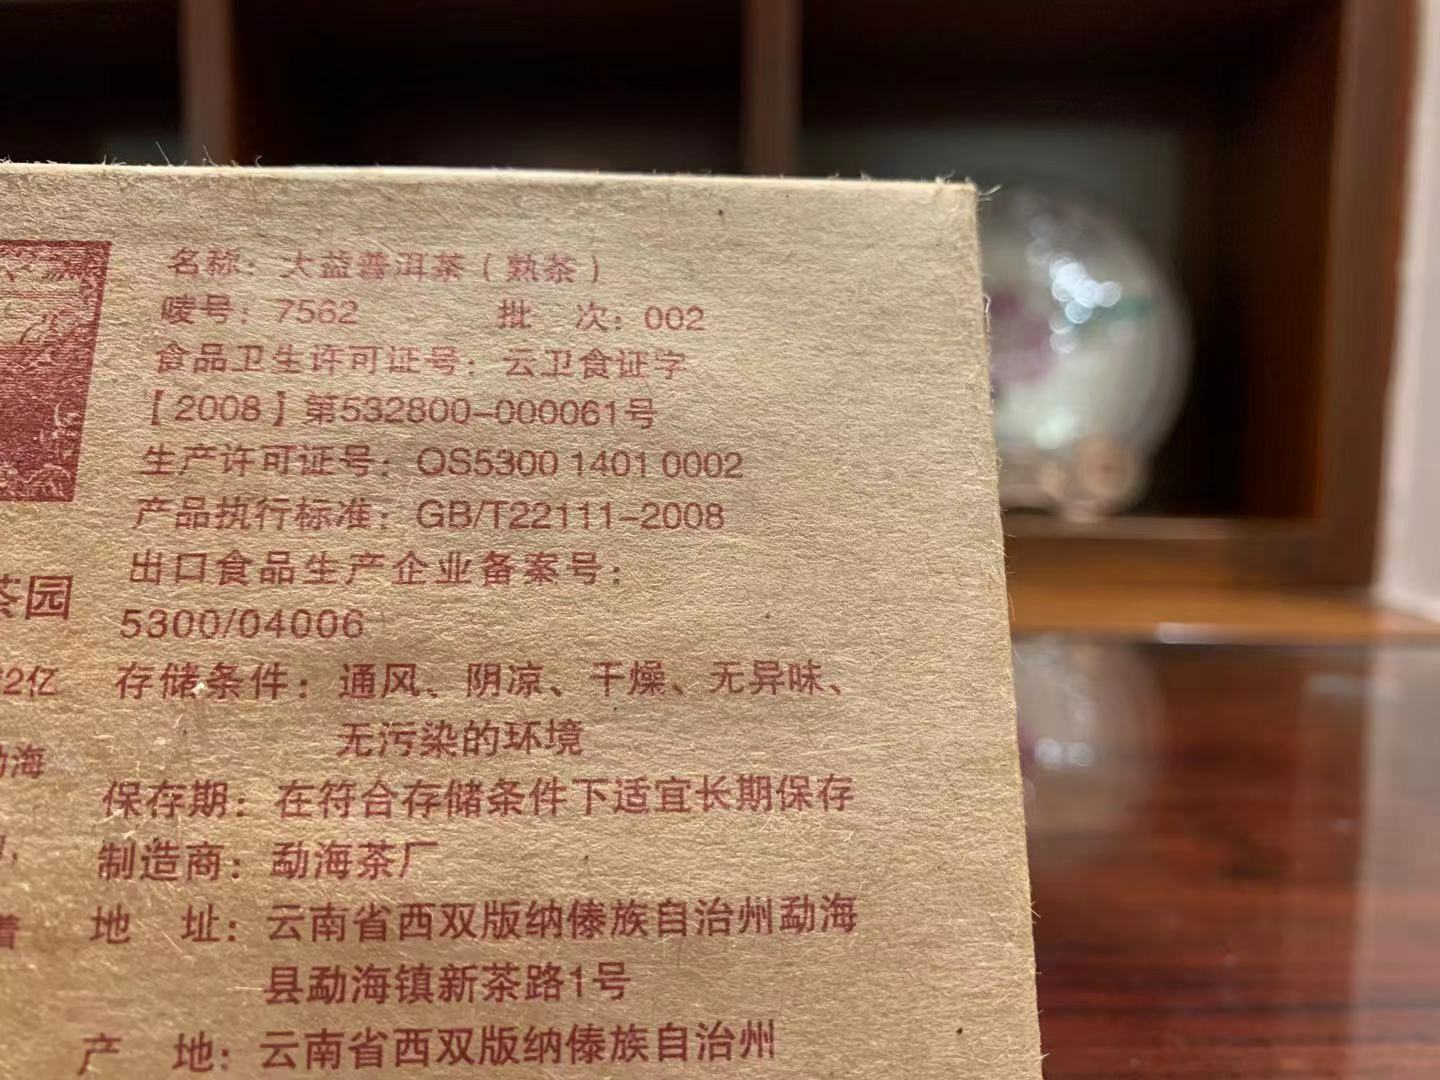 名称：大益普洱茶（熟茶）
唛号：7562 批 次：002
食品卫生许可证号：云卫食证字
【2008】第532800-000061号
生产许可证号：QS5300 1401 0002
产品执行标准：GB/T22111-2008
出口食品生产企业备案号：
5300/04006
存储条件：通风、阴凉、干燥、无异味、
无污染的环境
保存期：在符合存储条件下适宜长期保存
制造商：勐海茶厂
地 址：云南省西双版纳傣族自治州勐海
县勐海镇新茶路1号
产 地：云南省西双版纳傣族自治州
茶园
2亿
海